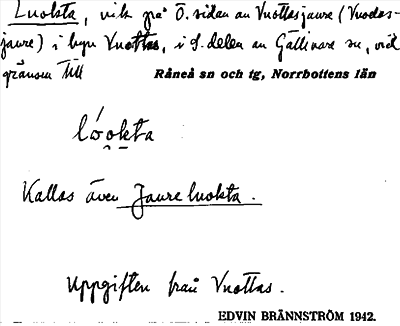 Luokta, vik på Ö. sidan av Vuottasjaure (Vuodas-
jaure) i byn Vuottas, i S. delen av Gällivare sn, vid
gränsen till
Råneå sn och tg, Norrbottens län
lóokta
Kallas även Jaureluokta.
Uppgiften från Vuottas.
EDVIN BRÄNNSTRÖM 1942.